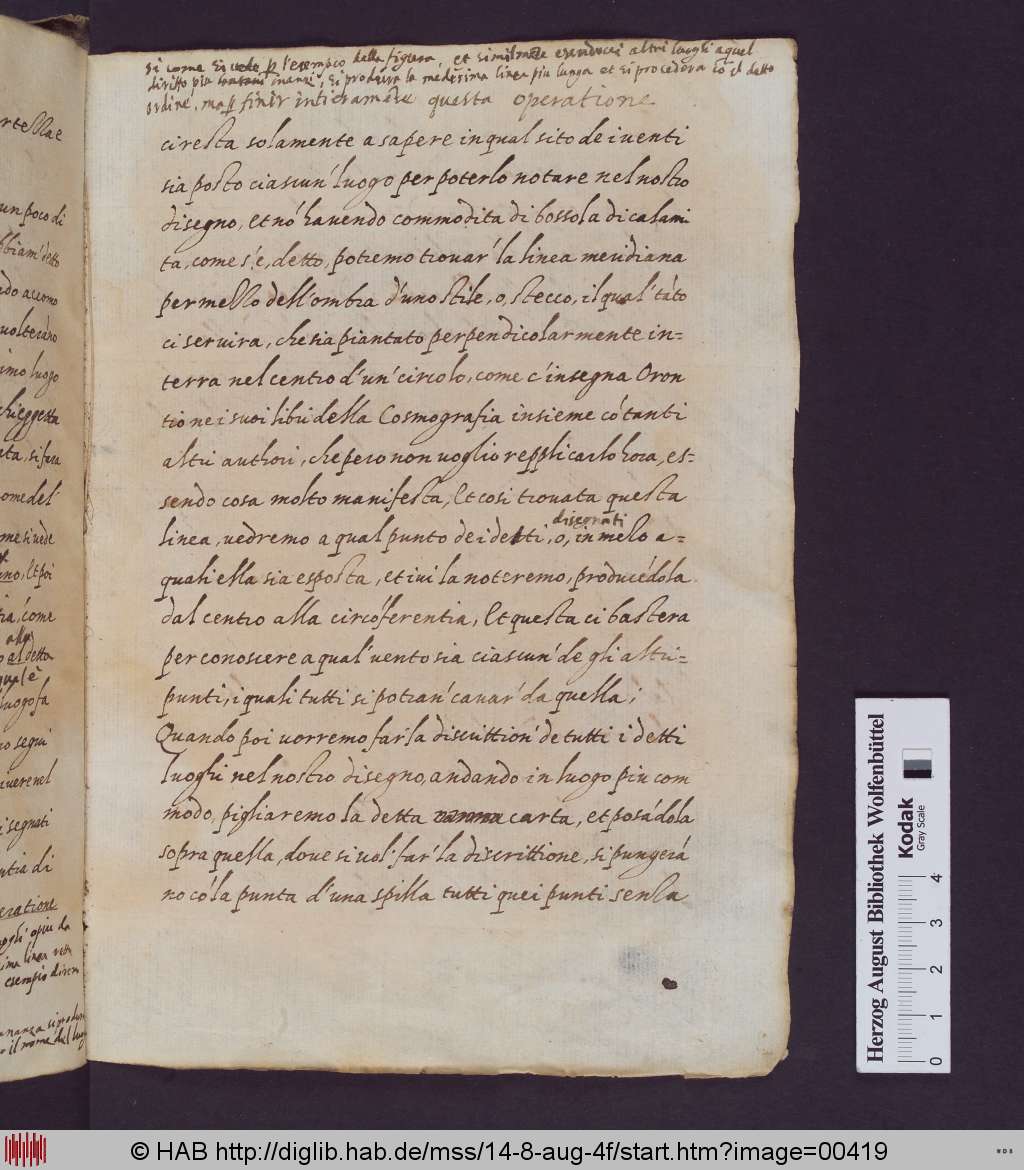 si come si vede p l'esempio della figura, et similmẽte essendoci altri luoghi a quel
diritto piu inanzi, si produrra la medesima linea piu lunga et si procedera cõ il detto
ordine, ma p finir intieramẽte questa operatione
ci resta solamente a sapere in qual sito de i venti
sia posto ciascun' luogo per poterlo notare nel nostro
disegno, et nõ havendo commodita di bossola di calami
ta, come s'è, detto, potremo trovar' la linea meridiana
per mezzo dell'ombra d'uno stile, o, stecco, il qual' tãto
ci servira, che sia piantato perpendicolarmente in=
terra nel centro d'un' circolo, come c'insegna Oron
tio ne i suoi libri della Cosmografia insieme cõ tanti
altri authori, che pero non voglio repplicarlo hora, es-
sendo cosa molto manifesta, Et cosi trovata questa
disegnati
linea, vedremo a qual punto de i detti, o, in mezo a=
quali ella sia esposta, et ivi la noteremo, producẽdola
dal centro alla circõferentia, Et questa ci bastera
per conoscere a qual' vento sia ciascun' de gli altri=
punti, i quali tutti si potran' cavar' da quella;
Quando poi vorremo far la discrittion' de tutti i detti
luoghi nel nostro disegno, andando in luogo piu com
modo, pigliaremo la detta carta, et posãdola
sopra quella, dove si vol' far' la discrittione, si pungerã
no cõ la punta d'una spilla tutti quei punti senza
rtezza e
un poco di
bbiam' detto
ndo accomo
volterãno
simo luogo
chieggetta
ata, si fara
ome del'
me si vede
no, Et poi
tia, come
alla
o al detta
qual è
luogo fa
no segui
avere nel
disegnati
ntia di
eratione
Herzog August Bibliothek Wolfenbüttel
Kodak
Gray Scale
0 1 2 3 4
© HAB http://diglib.hab.de/mss/14-8-aug-4f/start.htm?image=00419